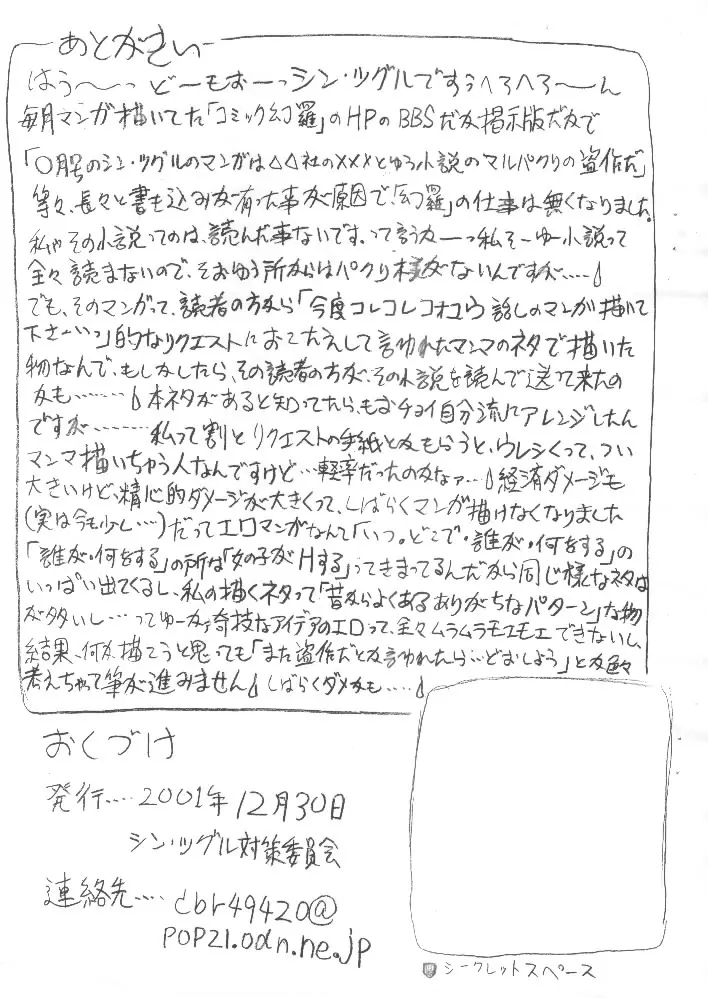 あとがきぃ
はう～っ どーもおーっシン・ツグルですぅへろへろ～ん
毎月マンガ描いてた「コミック幻羅」のHPのBBSだか掲示版だかで
「○月号のシン・ツグルのマンガは△△社の×××とゆう小説のマルパクリの盗作だ」
等々、長々と書き込みが有った事が原因で「幻羅」の仕事は無くなりました。
私やその小説ってのは、読んだ事ないです、って言うかーっ私そーゆー小説って
全々読まないので、そおゆう所からはパクり様がないんですが……
でも、そのマンガって、読者の方から「今度コレコレコオユウ話しのマンガ描いて
下さーい」的なリクエストにおこたえして言われたマンマのネタで描いた
物なんで、もしかしたら、その読者の方が、その小説を読んで送って来たの
かも……… 本ネタがあると知ってたら、もおチョイ自分流にアレンジしたん
ですが……… 私って割とリクエストの手紙とかもらうと、ウレシくって、つい
マンマ描いちゃう人なんですけど…軽率だったのかなァ… 経済ダメージも
大きいけど、精心的ダメージが大きくって、しばらくマンガ描けなくなりました
(実は今も少し…)だってエロマンガなんて「いつ。どこで・誰が・何をする」の
「誰が・何をする」の所は「女の子がHする」ってきまってるんだから同じ様なネタは
いっぱい出てくるし、私の描くネタって「昔からよくあるありがちなパターン」な物
が多いし…ってゆーか奇技なアイデアのエロって、全々ムラムラモエモエできないし、
結果、何か描こうと思っても「また盗作だとか言われたら…どおしよう」とか色々
考えちゃって筆が進みません しばらくダメかも……
おくづけ
発行…‥2001年12月30日
シン・ツグル対策委員会
連絡先…‥cbr49420@
pop21.odn.ne.jp
シークレットスペース